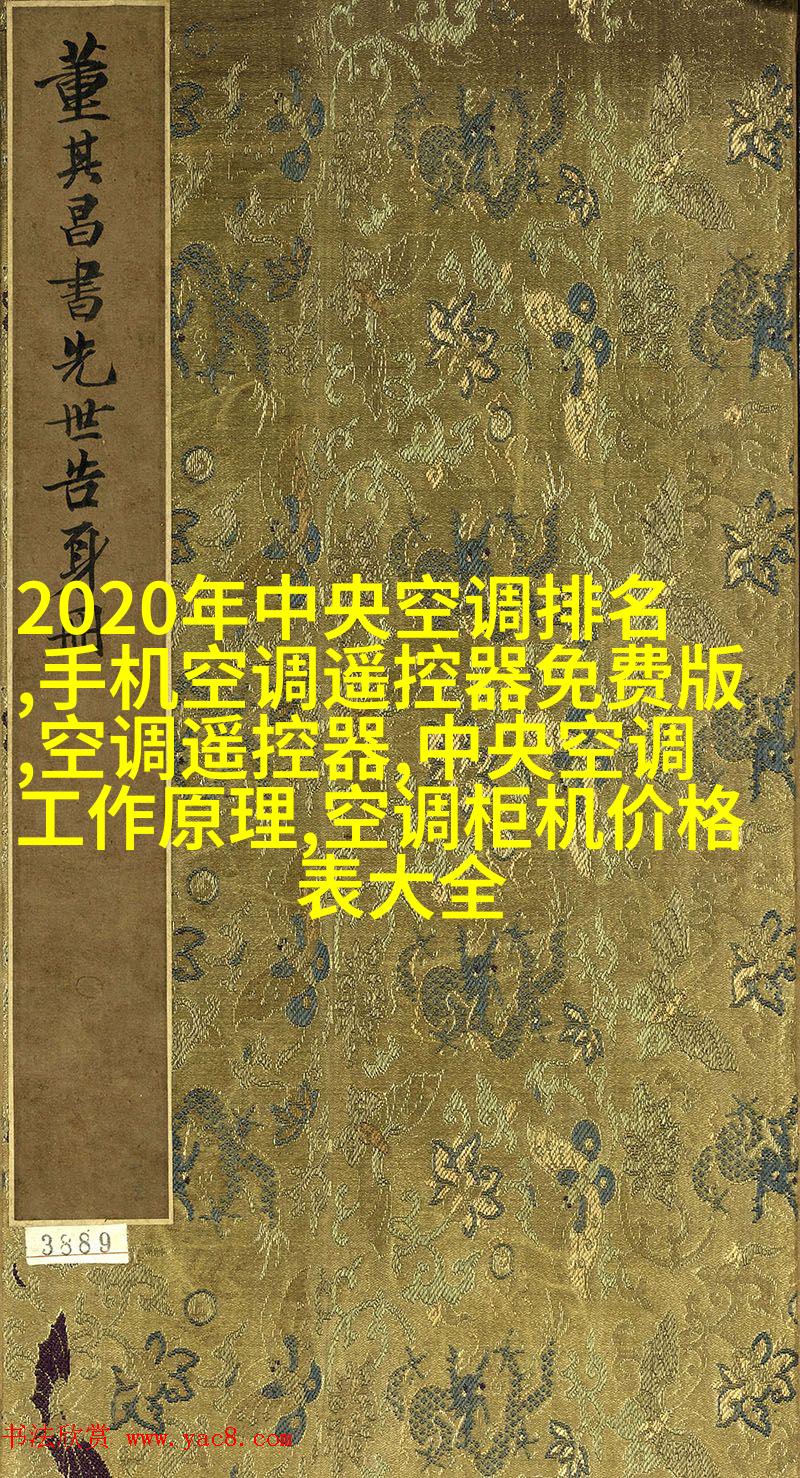 董其昌書先世告身冊
2020年中央空调排名
,手机空调遥控器免费版
,空调遥控器,中央空调
工作原理,空调柜机价格
表大全
3889
书法欣赏 www.yac8.com